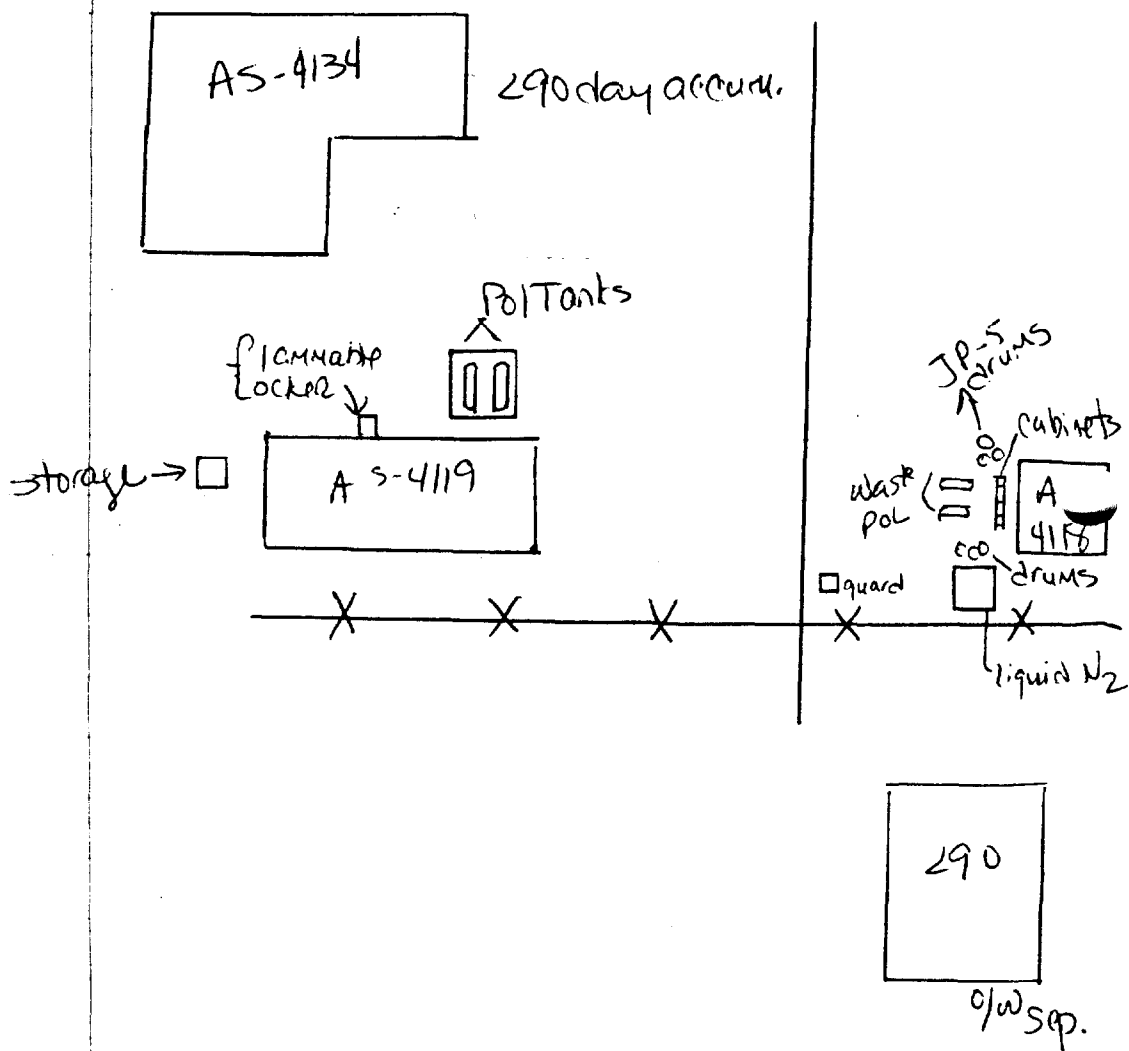 AS-4134
<90 day accum.
Pol Tanks
flammable
Locker
storage
AS-4119
JP-5
drums
cabinets
waste
POL
A
drums
guard
liquid N2
<90
O/W Sep.